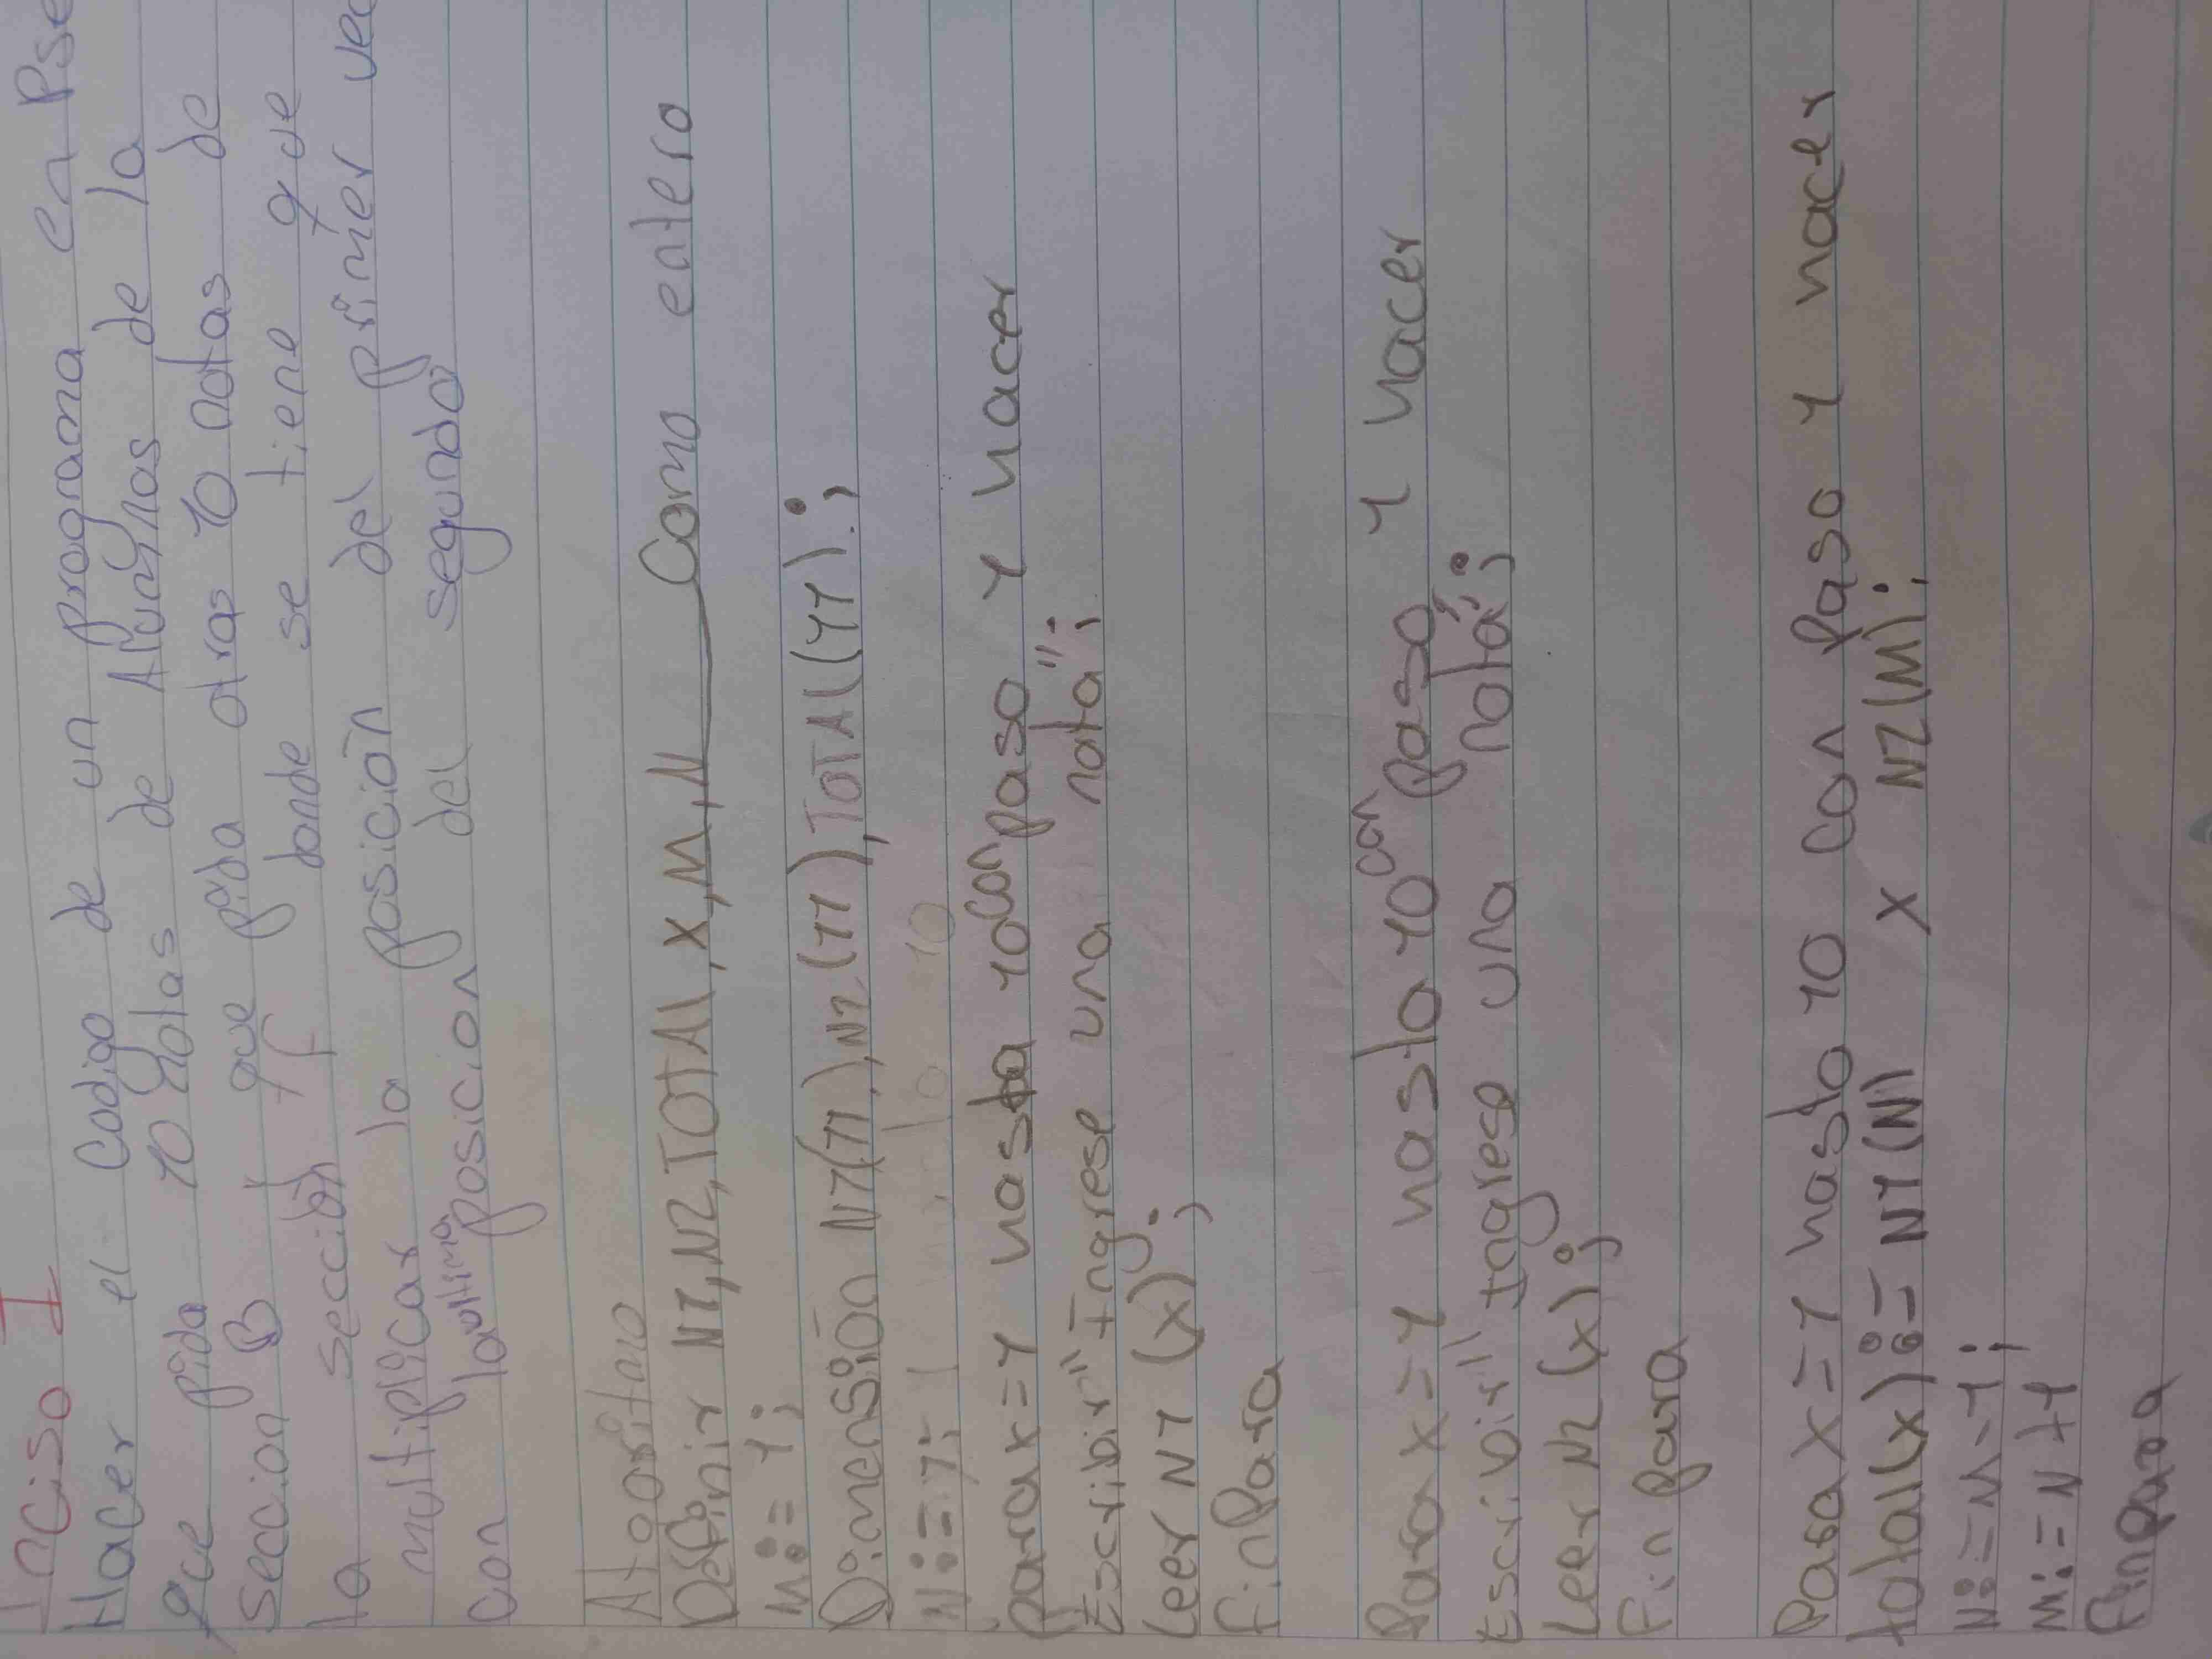 Inciso I
Hacer el Codigo de un programa en Pse
que pida 10 notas de Alumnos de la
Seccion B y que pida otras 10 notas de
la sección F donde se tiene que
multiplicar la posición del primer vec
con la ultima posicion del segundo
Algoritmo
Definir N1, N2, TOTAl, X, M, N Como entero
M:= 1;
Dimensión N1(11), N2(11), TOTAl(11);
N:=11;
Para x=1 hasta 10 con paso 1 hacer
Escribir "Ingrese una nota";
Leer N1 (x);
fin Para
Para x=1 hasta 10 con paso 1 hacer
Escribir "Ingrese una nota";
Leer N2 (x);
Fin Para
Para x=1 hasta 10 con Paso 1 hacer
total(x):= N1(N) x N2(M);
M:= N+1
Fin Para